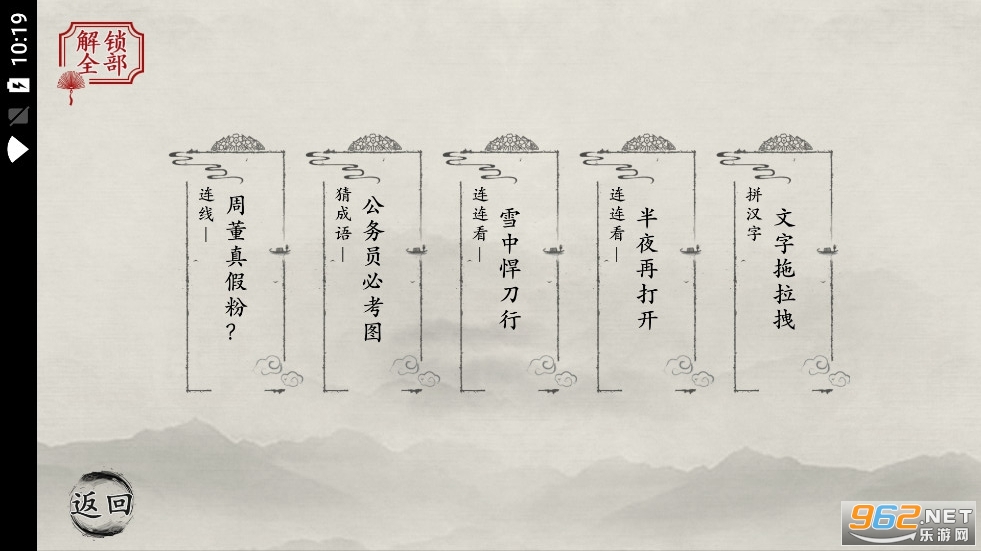 10:19
解锁
全部
连线—
周董真假粉?
猜成语—
公务员必考图
连连看—
雪中悍刀行
连连看—
半夜再打开
拼汉字
文字拖拉拽
返回
962.NET
乐游网